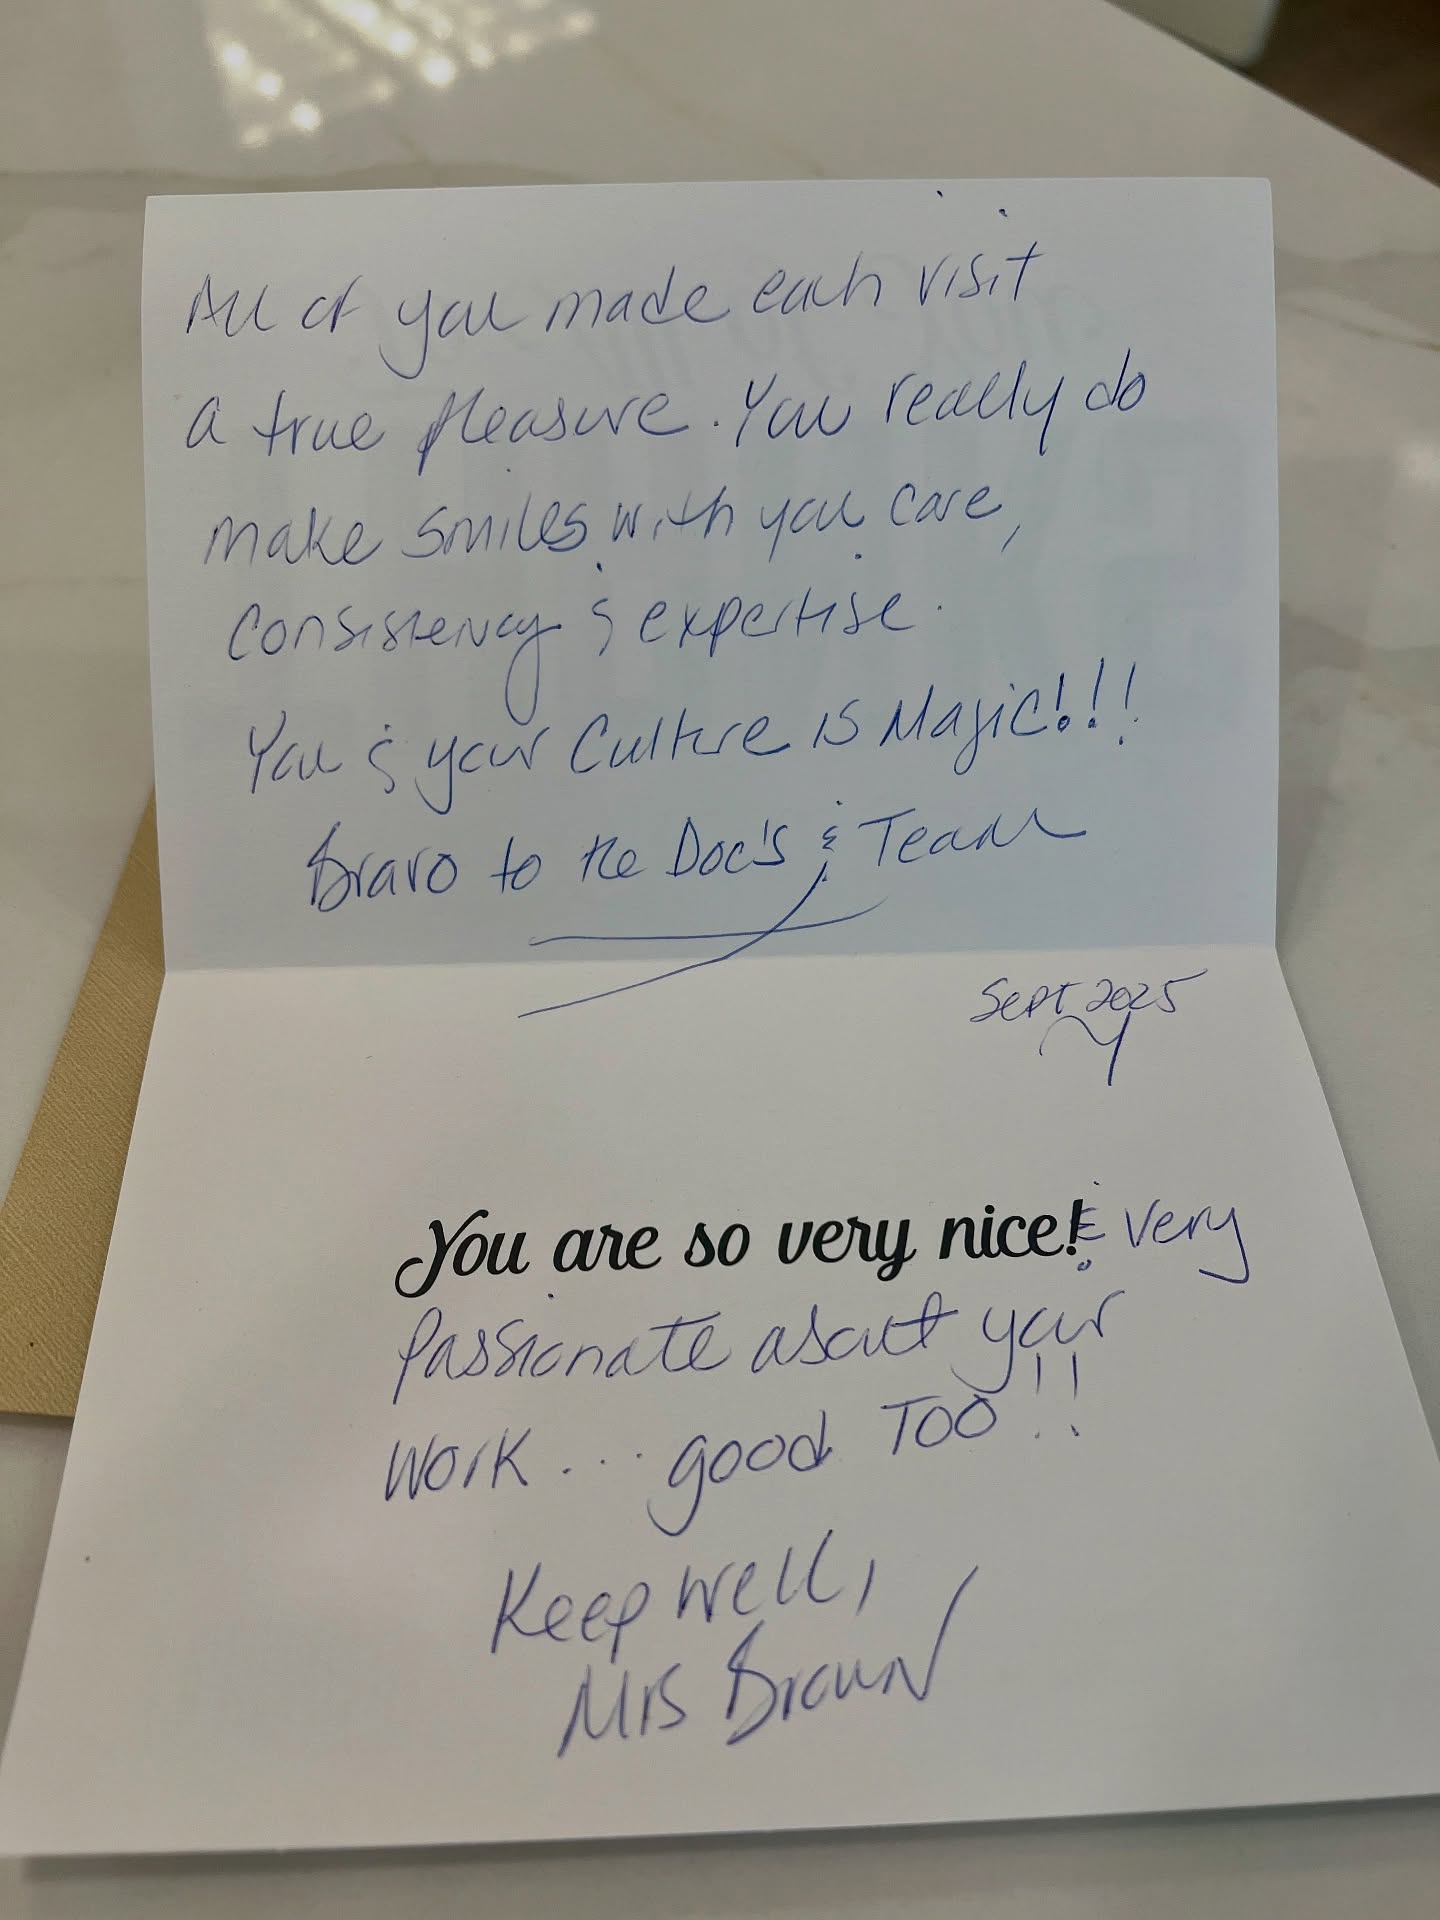 All of you made each visit
a true pleasure. You really do
make smiles with you care,
consistency & expertise.
You & your Culture is Magic!!!
Bravo to the Doc's & Team
Sept 2025
You are so very nice! & very
passionate about your
work... good TOO!!
Keep well,
Mrs Brown